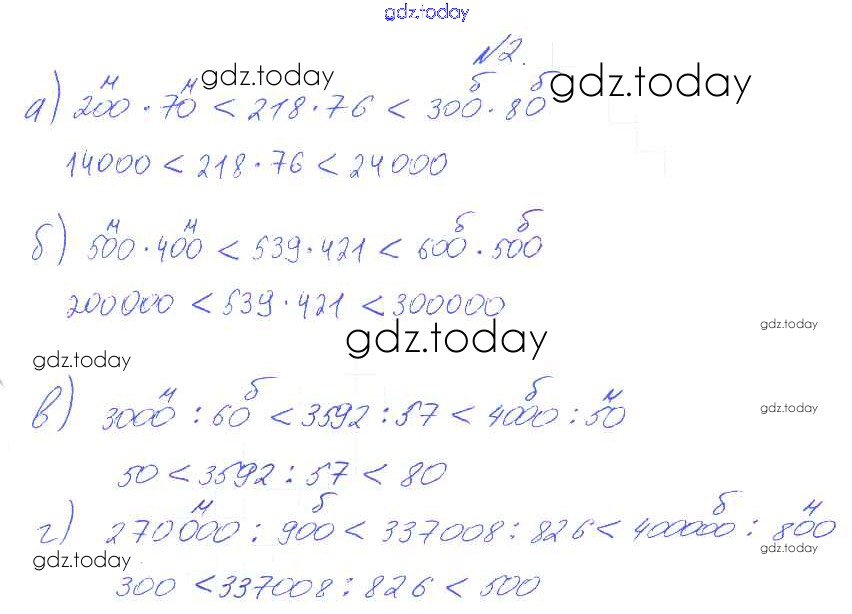 gdz.today
№2.
gdz.today
gdz.today
м м б б
а) 200 · 70 < 218 · 76 < 300 · 80
14000 < 218 · 76 < 24000
м м б б
б) 500 · 400 < 539 · 421 < 600 · 500
200000 < 539 · 421 < 300000
gdz.today
gdz.today
gdz.today
м б б м
в) 3000 : 60 < 3592 : 57 < 4000 : 50
gdz.today
50 < 3592 : 57 < 80
м б б м
г) 270000 : 900 < 337008 : 826 < 400000 : 800
gdz.today
gdz.today
300 < 337008 : 826 < 500